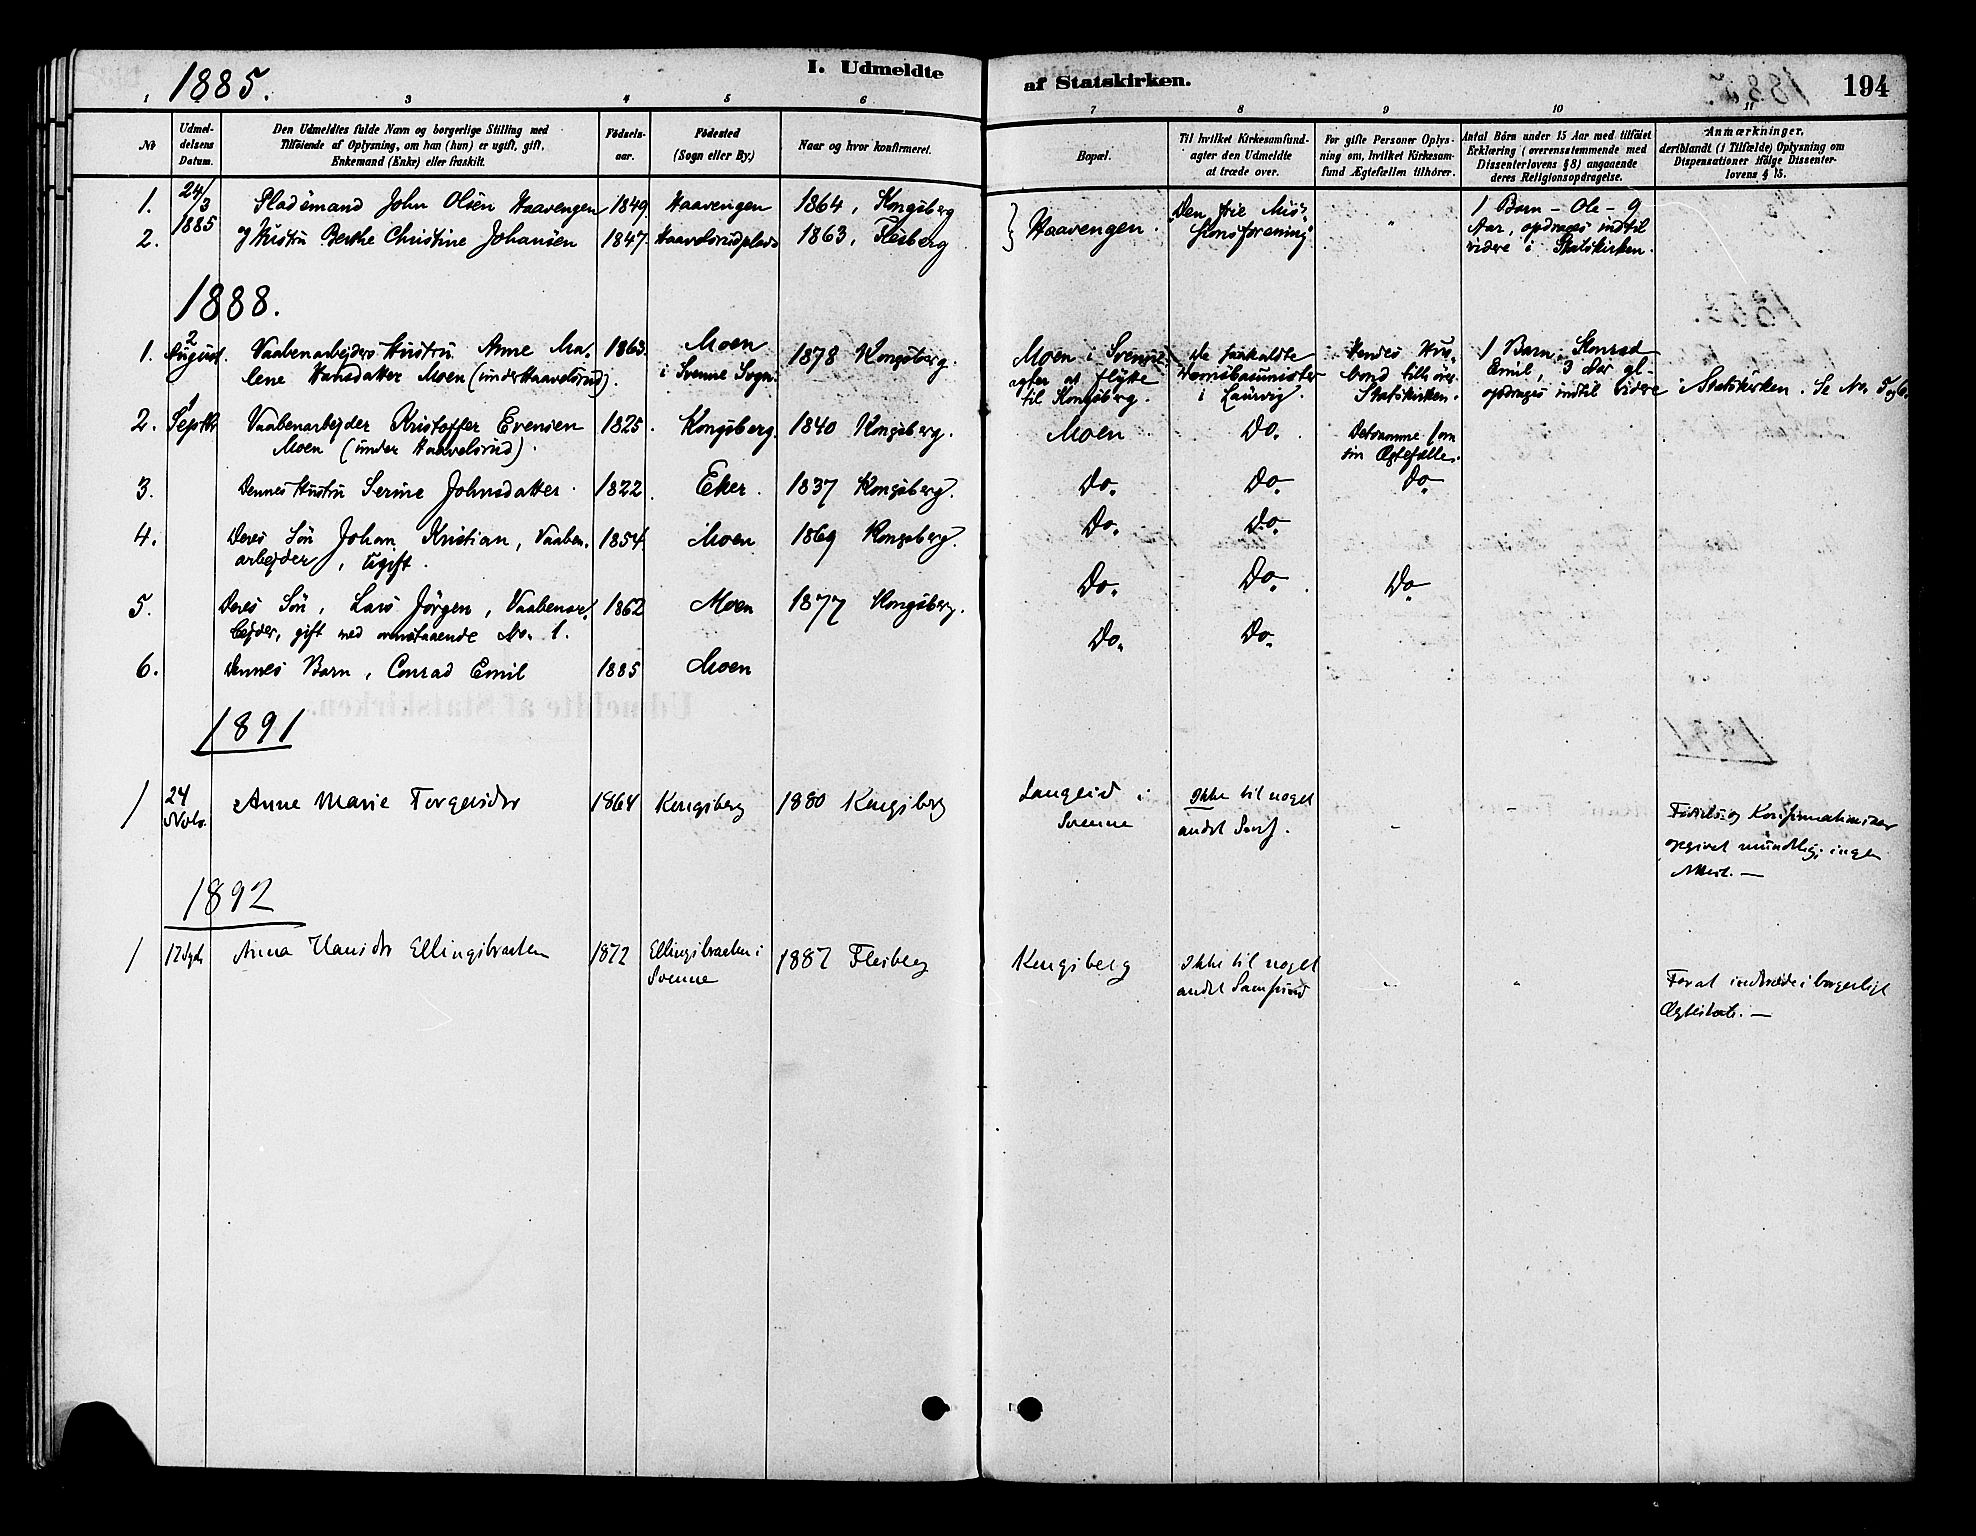 1885.
I. Udmeldte
af Statskirken.
194
1 2 3 4 5 6 7 8 9 10 11
No
Udmel-
delsens
Datum.
Den Udmeldtes fulde Navn og borgerlige Stilling med
Tilføiende af Oplysning, om han (hun) er ugift, gift,
Enkemand (Enke) eller fraskilt.
Fødsels-
aar.
Fødested
(Sogn eller By.)
Naar og hvor konfirmeret.
Bopæl.
Til hvilket Kirkesamfund-
agter den Udmeldte
at træde over.
For gifte Personer Oplys-
ning om, hvilket Kirkesam-
fund Ægtefællen tilhører.
Antal Børn under 15 Aar med tilføiet
Erklæring (overensstemmende med
Dissenterlovens § 8) angaaende
deres Religionsopdragelse.
Anmærkninger,
deriblandt (i Tilfælde) Oplysning om
Dispensationer ifølge Dissenter-
lovens § 15.
1. 24/3 Pladsmand John Olsen Haavengen 1849 Haavengen 1864, Kongsberg
2. 1885 og Hustru Berthe Christine Johansen 1847 Haavelsrudplads 1863, Flesberg
Haavengen.
Den frie Mis-
sionsforening
"
1 Barn - Ole - 9
Aar, opdrages indtil
videre i Statskirken.
1888.
1. 2 August. Vaabenarbejders Hustru Anne Ma-
lene Hansdatter Moen (under Haavelsrud).
1863.
Moen
i Svenne Sogn.
1878 Kongsberg.
Moen i Svenne,
agter at flytte
til Kongsberg.
De saakaldte
i Laurvig.
Hendes Hus-
bond tilhører
Statskirken.
1 Barn, Konrad
Emil, 3 Aar gl.
opdrages indtil videre i Statskirken. Se No. 5 og 6.
2. 1 Septbr Vaabenarbejder Kristoffer Evensen
Moen (under Haavelsrud).
1825. Kongsberg. 1840 Kongsberg. Moen Do.
Detsamme som
sin Ægtefælle.
3. Dennes Hustru Serine Johnsdatter 1822. Eker. 1837 Kongsberg. Do. Do. Do.
4. Deres Søn Johan Kristian, Vaaben-
arbejder, ugift.
1854. Moen 1869 Kongsberg. Do. Do.
5. Deres Søn, Lars Jörgen, Vaabenar-
bejder, gift med ovenstaaende No. 1.
1862 Moen 1877 Kongsberg. Do. Do. Do.
6. Dennes Barn, Conrad Emil 1885 Moen Do. Do.
1891
1 24 Novb. Anne Marie Torgersdtr 1864 Kongsberg 1880 Kongsberg
i
Svenne
Ikke til noget
andet Samf.
-
-
Fødsels- og Konfirmationsaar
opgivet mundtlig; ingen
Attest. -
1892
1 17 Septb Anna Hansdtr Ellingsbraaten 1872
Ellingsbraaten i
Svenne
1887 Flesberg Kongsberg
Ikke til noget
andet Samfund
For at indtræde i borgerligt
Ægteskab. -